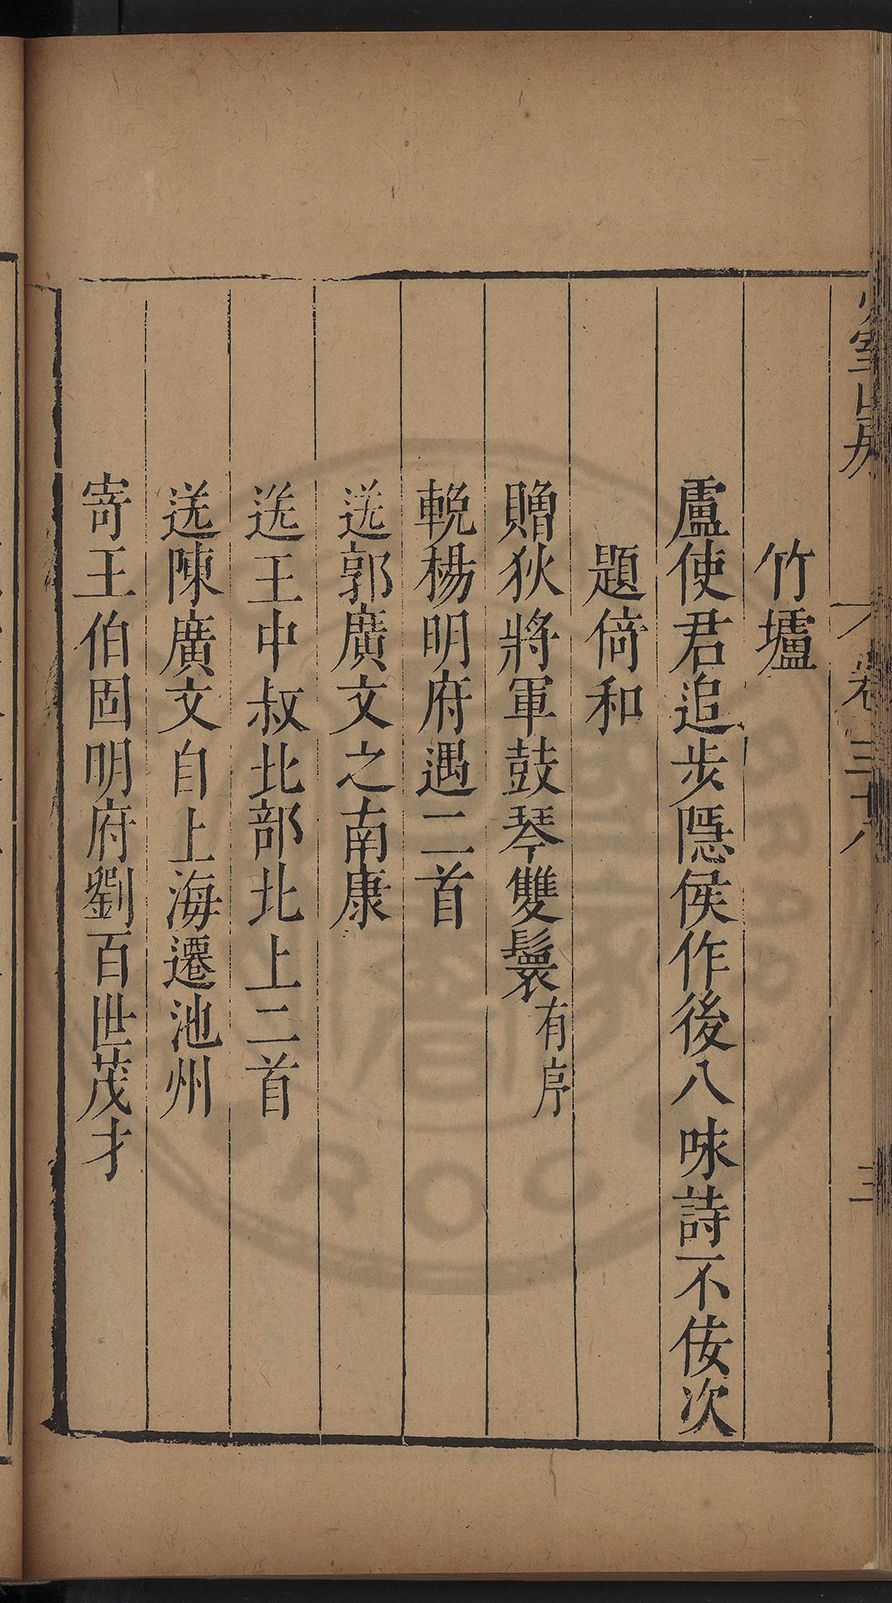 竹壚
盧使君追步隱侯作後八味詩不佞次
題倚和
贈狄將軍鼓琴雙鬟有序
輓楊明府遇二首
送郭廣文之南康
送王中叔北部北上二首
送陳廣文自上海遷池州
寄王伯固明府劉百世茂才